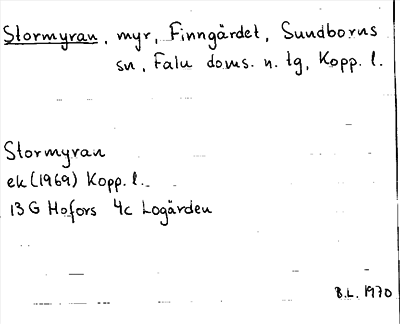 Stormyran, myr, Finngärdet, Sundborns
sn, Falu doms. n. tg, Kopp. l.
Stormyran
ek (1969) Kopp. l.
13 G Hofors 4c Logärden
B.L. 1970